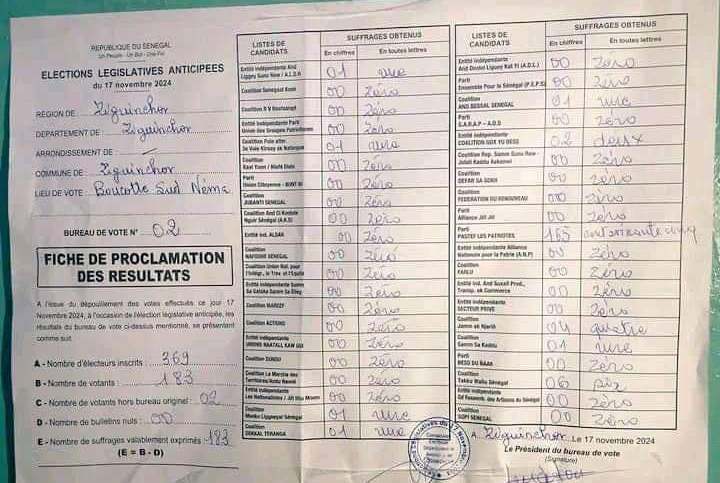 REPUBLIQUE DU SENEGAL
Un Peuple - Un But - Une Foi
ELECTIONS LEGISLATIVES ANTICIPEES
du 17 novembre 2024
REGION DE Ziguinchor
DEPARTEMENT DE Ziguinchor
ARRONDISSEMENT DE
COMMUNE DE Ziguinchor
LIEU DE VOTE : Boucotte Sud Néma
BUREAU DE VOTE N° 02
FICHE DE PROCLAMATION
DES RESULTATS
A l'issue du dépouillement des votes effectués ce jour 17
Novembre 2024, à l'occasion de l'élection législative anticipée, les
résultats du bureau de vote ci-dessus mentionné, se présentent
comme suit
A - Nombre d'électeurs inscrits : 369
B - Nombre de votants : 183
C - Nombre de votants hors bureau originel : 02
D - Nombre de bulletins nuls : 00
E - Nombre de suffrages valablement exprimés : 183
(E = B - D)
LISTES DE CANDIDATS
SUFFRAGES OBTENUS
En chiffres
En toutes lettres
Entité Indépendante And
Liggey Sunu Rew / A.L.S.R 01 une
Coalition Senegaal Kese 00 Zéro
Coalition R V Naataangé 00 Zéro
Entité Indépendante Parti
Union des Groupes Patriotiques 00 Zéro
Coalition Pole alter.
3e Voie Kiraay ak Natangué 01 une
Coalition
Raal Yoon / Nafi Diallo 00 Zéro
Parti
Union Citoyenne - BUNT BI 00 Zéro
Coalition
JUBANTI SENEGAL 00 Zéro
Coalition And Ci Koolute
Nguir Sénégal (A.K.S) 00 Zéro
Entité Ind. ALSAR 00 Zéro
Coalition
NAFOORE SENEGAL 00 Zéro
Coalition Union Nat. pour
l'Intégr., le Trav. et l'Equité 00 Zéro
Entité Indépendante Samm
00 Zéro
Coalition WAREEF 00 Zéro
Coalition ACTIONS 00 Zéro
Entité Indépendante
UNIONS NAATALL KAW GUI 00 Zéro
Coalition GUNDU 00 Zéro
Coalition La Marche des
Territoires/Andu Nawlé 00 Zéro
Entité Indépendante
Les Nationalistes / Jël Liñu Moom 00 Zéro
Coalition
Manko Liggeeyal Sénégal 01 une
Coalition
DEKKAL TERANGA 01 une
LISTES DE CANDIDATS
SUFFRAGES OBTENUS
En chiffres
En toutes lettres
Entité Indépendante
And Doolel Liguey Kat Yi (A.D.L.) 00 Zéro
Parti
Ensemble Pour le Sénégal (P.E.P.S) 00 Zéro
Coalition
AND BESSAL SENEGAL 01 une
Parti
S.A.R.A.P - A.D.S 00 Zéro
Entité indépendante
COALITION GOX YU BESS 02 deux
Coalition Rep. Samm Sunu Rew -
00 Zéro
Coalition
DEFAR SA GOKH 00 Zéro
Coalition
FEDERATION DU RENOUVEAU 00 Zéro
Parti
Alliance Jëf Jël 00 Zéro
Parti
PASTEF LES PATRIOTES 165 cent soixante cinq
Entité Indépendante Alliance
Nationale pour la Patrie (A.N.P) 00 Zéro
Coalition
FARLU 00 Zéro
Entité Ind. And Suxali Prod.,
Transp. ak Commerce 00 Zéro
Entité Indépendante
SECTEUR PRIVE 00 Zéro
Coalition
Jamm ak Njariñ 04 quatre
Coalition
Samm Sa Kaddu 01 une
Parti
BESS DU ÑAKK 00 Zéro
Coalition
Takku Wallu Sénégal 06 six
Entité Indépendante
Gd Rassemb. des Artisans du Sénégal 00 Zéro
Coalition
SOPI SENEGAL 00 Zéro
A Ziguinchor Le 17 novembre 2024
Le Président du bureau de vote
(Signature)